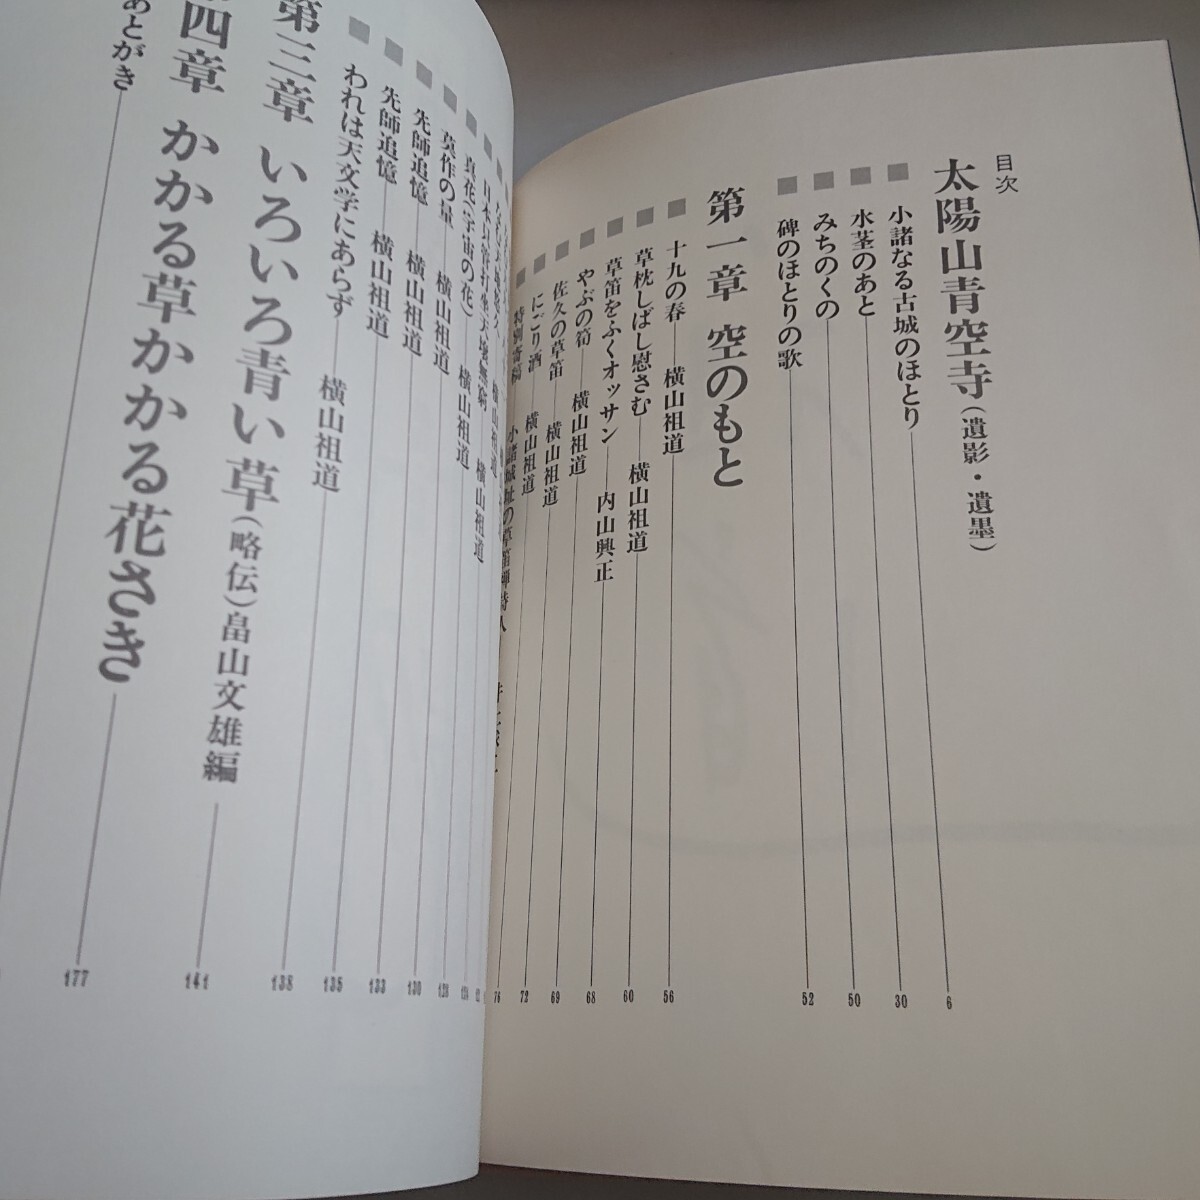 目次
太陽山青空寺(遺影・遺墨)
小諸なる古城のほとり 6
水茎のあと 30
みちのくの 50
碑のほとりの歌 52
第一章 空のもと
十九の春 横山祖道 56
草枕しばし慰さむ 横山祖道 60
草笛をふくオッサン 内山興正 68
やぶの筍 横山祖道 69
佐久の草笛 横山祖道 72
にごり酒 横山祖道 76
特別寄稿 小諸城址の草笛禅詩人
日本只管打坐天壌無窮 横山祖道
真花(宇宙の花) 横山祖道
莫作の量 横山祖道 128
先師追憶 横山祖道 130
先師追憶 横山祖道 133
われは天文学にあらず 横山祖道 135
第三章 いろいろ青い草(略伝)畠山文雄編 138
141
四章 かかる草かかる花さき 177
あとがき